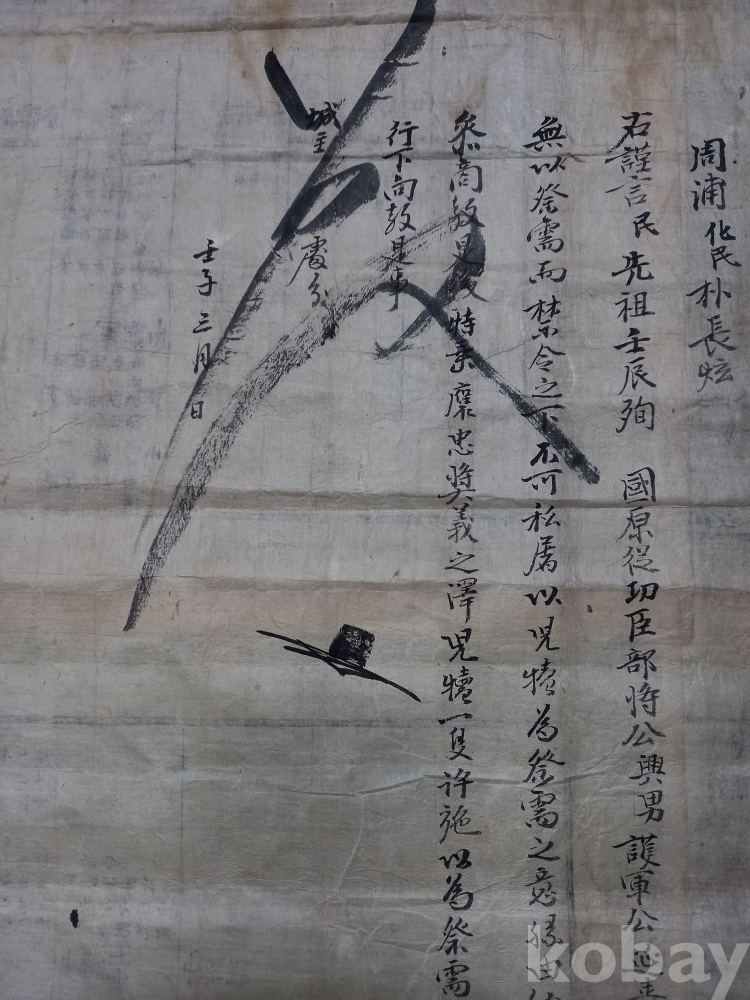 周浦化民朴長炫
右謹言民先祖壬辰殉 國原從功臣部將公興男護軍公延
無以祭需而禁令之下不可私屠以児犢為祭需之意緣由
參商敎是後特垂 褒忠奬義之澤児犢一隻许施以為祭需
行下向敎是事
城主 處分
壬子三月 日
kobay